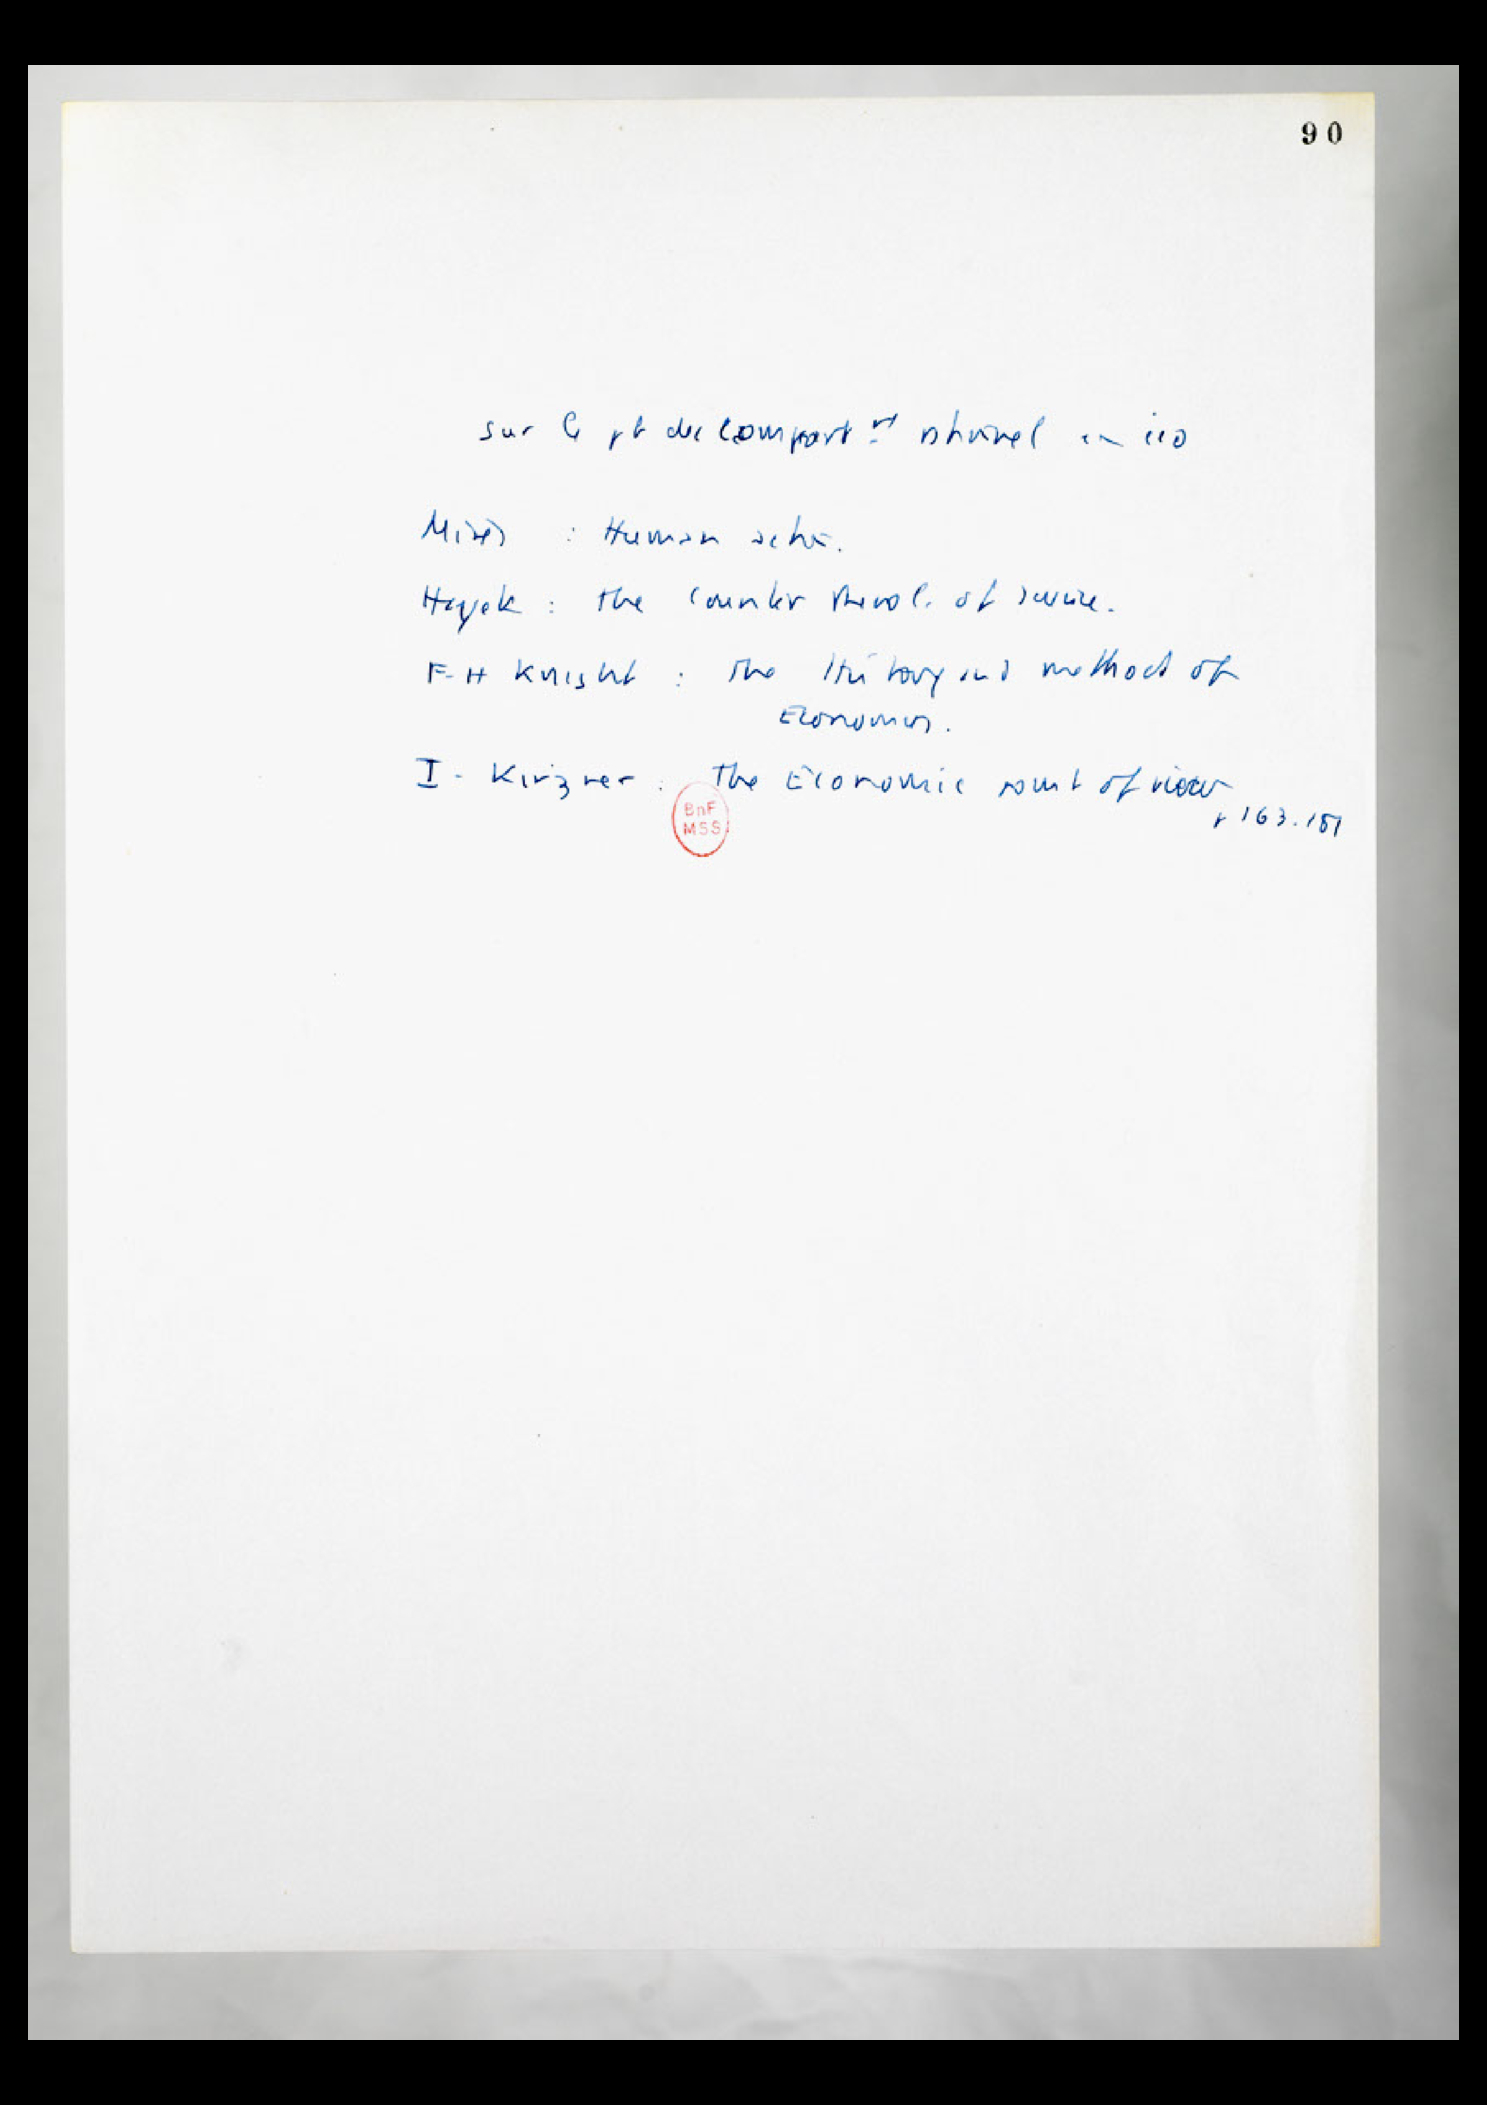 90
sur le pb du comportmt rationnel en éco
Mises : Human actio.
Hayek : the Counter Revol. of science.
F-H Knight : The History and method of
Economics.
I - Kirzner : The Economic point of view
p 163.187
BnF
MSS